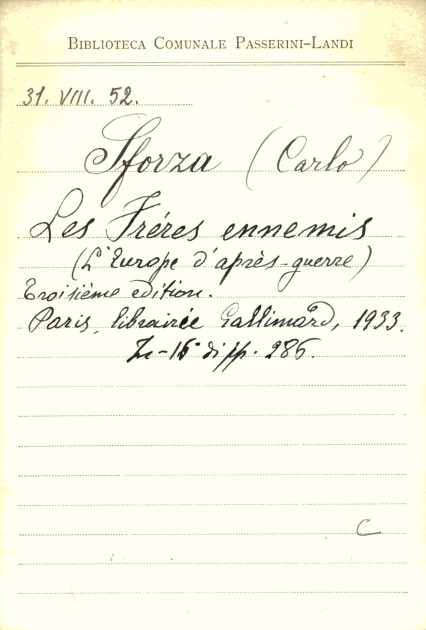 BIBLIOTECA COMUNALE PASSERINI-LANDI
31. VIII. 52.
Sforza (Carlo)
Les Fréres ennemis
(L'Europe d'après-guerre)
Troisième édition.
Paris, librairie Gallimard, 1933.
In-16° di pp. 286.
C